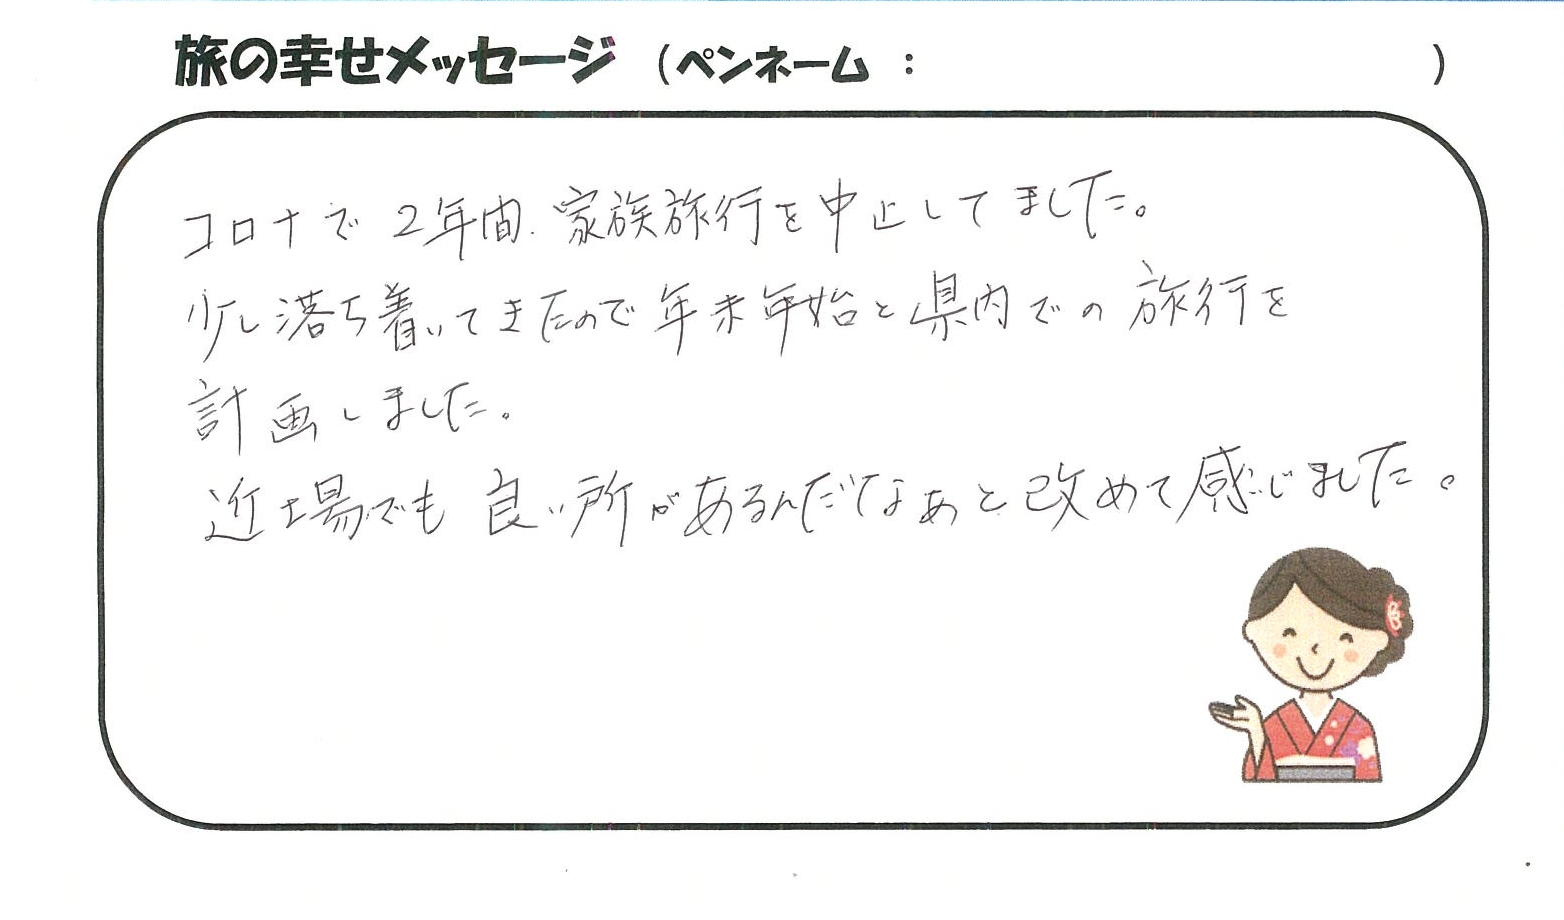 旅の幸せメッセージ (ペンネーム : )
コロナで2年間、家族旅行を中止してました。
少し落ち着いてきたので年末年始と県内での旅行を
計画しました。
近場でも良い所があるんだなぁと改めて感じました。